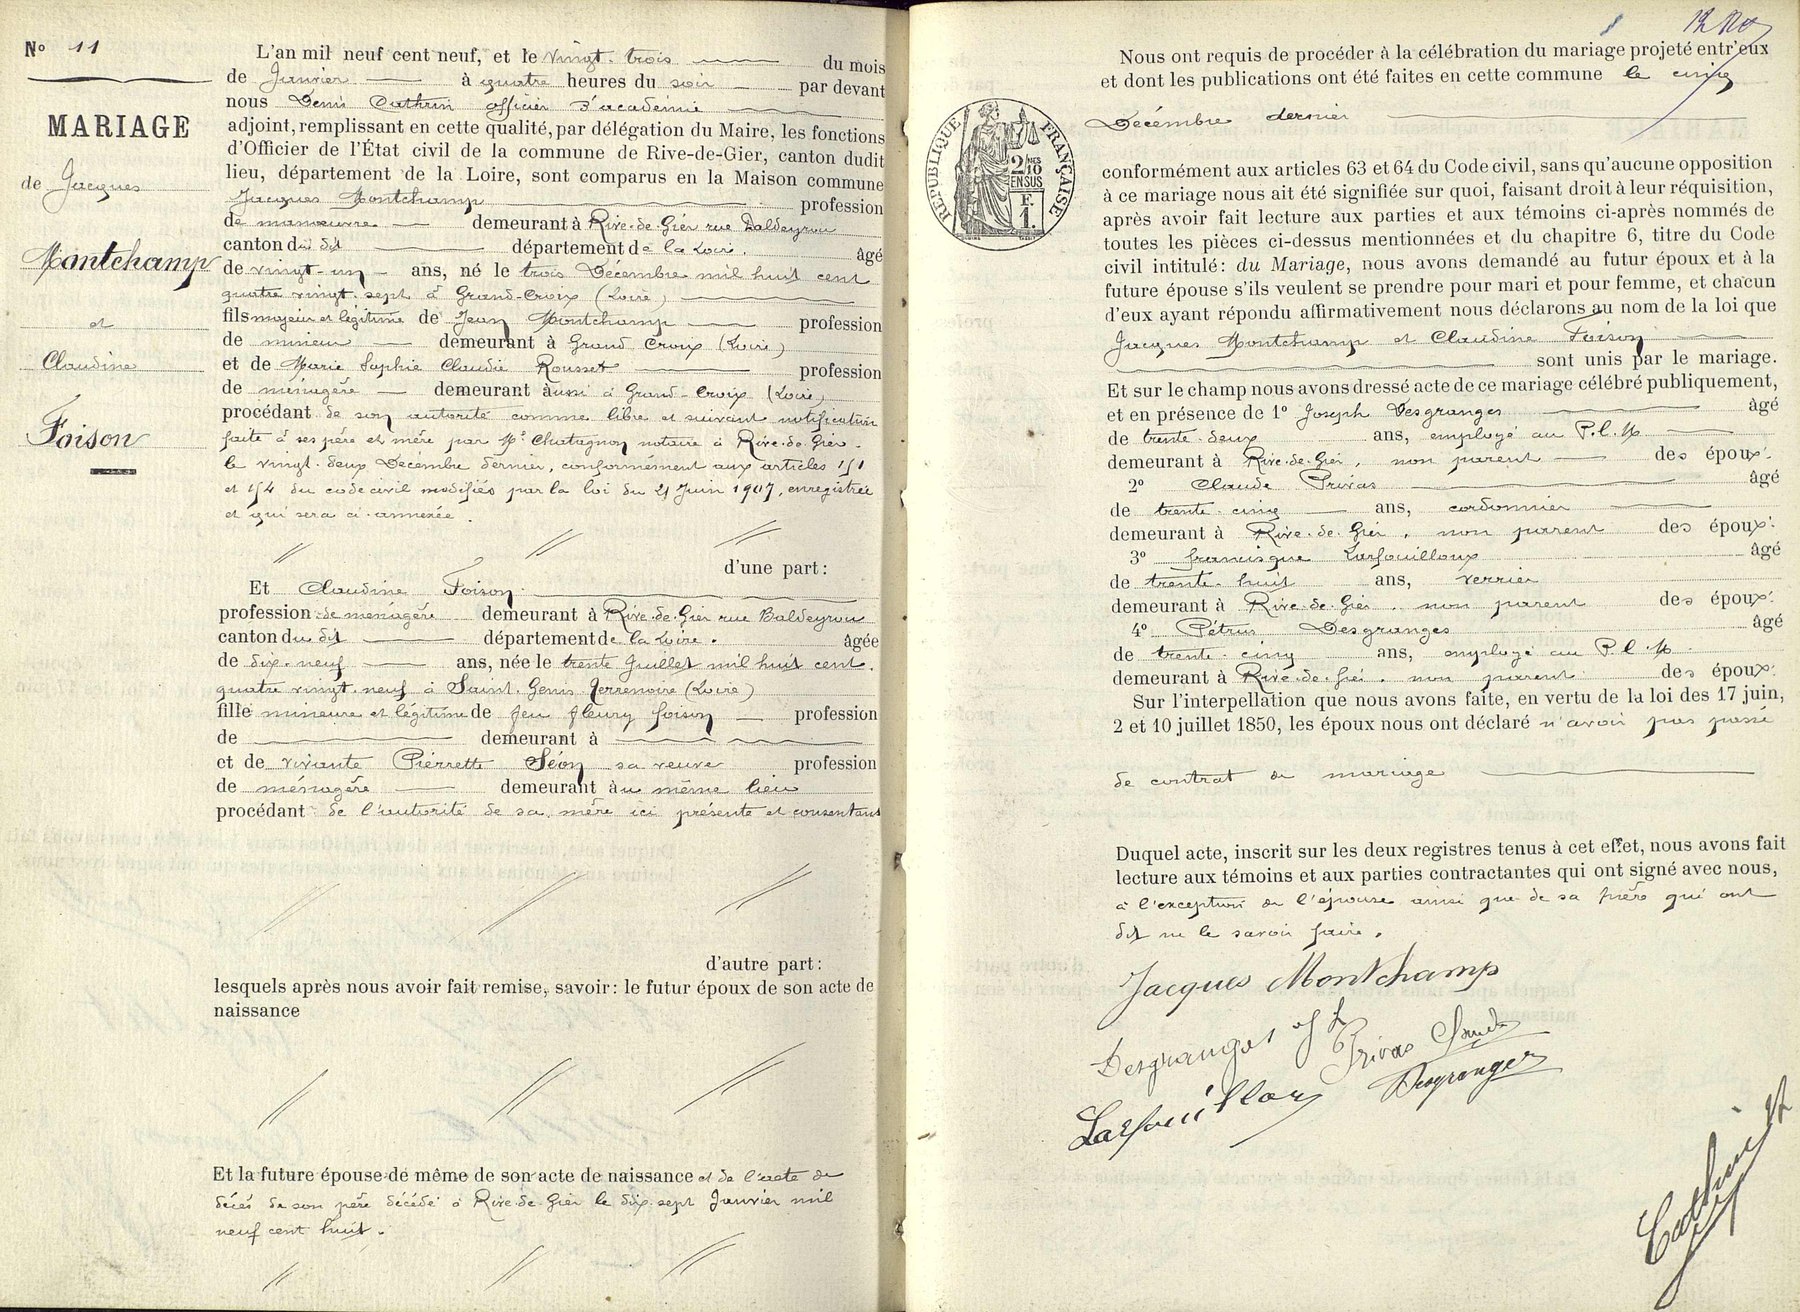 No 11
MARIAGE
de Jacques
Montchamp
et
Claudine
Foison
L'an mil neuf cent neuf, et le Vingt-trois du mois
de Janvier à quatre heures du soir par devant
nous Denis Cathrin officier d'académie
adjoint, remplissant en cette qualité, par délégation du Maire, les fonctions
d'Officier de l'État civil de la commune de Rive-de-Gier, canton dudit
lieu, département de la Loire, sont comparus en la Maison commune
Jacques Montchamp profession
de manœuvre demeurant à Rive-de-Gier rue Baldeyrou
canton du dit département de la Loire. âgé
de vingt-un ans, né le trois Décembre mil huit cent
quatre vingt-sept à Grand-Croix (Loire)
fils majeur et légitime de Jean Montchamp profession
de mineur demeurant à Grand Croix (Loire)
et de Marie Sophie Claudie Rousset profession
de ménagère demeurant aussi à Grand-Croix (Loire)
procédant de son autorité comme libre et suivant notification
faite à ses père et mère par Me Chatagnon notaire à Rive-de-Gier
le vingt-deux Décembre dernier, conformément aux articles 151
et 154 du code civil modifiés par la loi du 21 Juin 1907, enregistrée
et qui sera ci-annexée.
d'une part:
Et Claudine Foison
profession de ménagère demeurant à Rive-de-Gier rue Baldeyrou
canton du dit département de la Loire. âgée
de dix-neuf ans, née le trente Juillet mil huit cent
quatre vingt-neuf à Saint-Genis-Terrenoire (Loire)
fille mineure et légitime de feu fleury foison profession
de demeurant à
et de vivante Pierrette Séon sa veuve profession
de ménagère demeurant au même lieu
procédant de l'autorité de sa mère ici présente et consentant
d'autre part:
lesquels après nous avoir fait remise, savoir: le futur époux de son acte de
naissance
Et la future épouse de même de son acte de naissance et de l'acte de
décès de son père décédé à Rive-de-Gier le dix-sept Janvier mil
neuf cent huit.
Nous ont requis de procéder à la célébration du mariage projeté entr'eux
et dont les publications ont été faites en cette commune le cinq
Décembre dernier
RÉPUBLIQUE FRANÇAISE
2/10
EN SUS
F.
1.
conformément aux articles 63 et 64 du Code civil, sans qu'aucune opposition
à ce mariage nous ait été signifiée sur quoi, faisant droit à leur réquisition,
après avoir fait lecture aux parties et aux témoins ci-après nommés de
toutes les pièces ci-dessus mentionnées et du chapitre 6, titre du Code
civil intitulé: du Mariage, nous avons demandé au futur époux et à la
future épouse s'ils veulent se prendre pour mari et pour femme, et chacun
d'eux ayant répondu affirmativement nous déclarons au nom de la loi que
Jacques Montchamp et Claudine Foison
sont unis par le mariage.
Et sur le champ nous avons dressé acte de ce mariage célébré publiquement,
et en présence de 1º Joseph Desgranges âgé
de trente-deux ans, employé au P.L.M
demeurant à Rive-de-Gier, non parent des époux.
2º Claude Privas âgé
de trente-cinq ans, cordonnier
demeurant à Rive-de-Gier, non parent des époux.
3º francisque Larfouilloux âgé
de trente-huit ans, verrier
demeurant à Rive-de-Gier, non parent des époux.
4º Pétrus Desgranges âgé
de trente-cinq ans, employé au P.L.M
demeurant à Rive-de-Gier, non parent des époux.
Sur l'interpellation que nous avons faite, en vertu de la loi des 17 juin,
2 et 10 juillet 1850, les époux nous ont déclaré n'avoir pas passé
de contrat de mariage
Duquel acte, inscrit sur les deux registres tenus à cet effet, nous avons fait
lecture aux témoins et aux parties contractantes qui ont signé avec nous,
à l'exception de l'épouse ainsi que de sa mère qui ont
dit ne le savoir faire.
Jacques Montchamp
Desgranges Privas Claude
Larfouilloux Desgranges